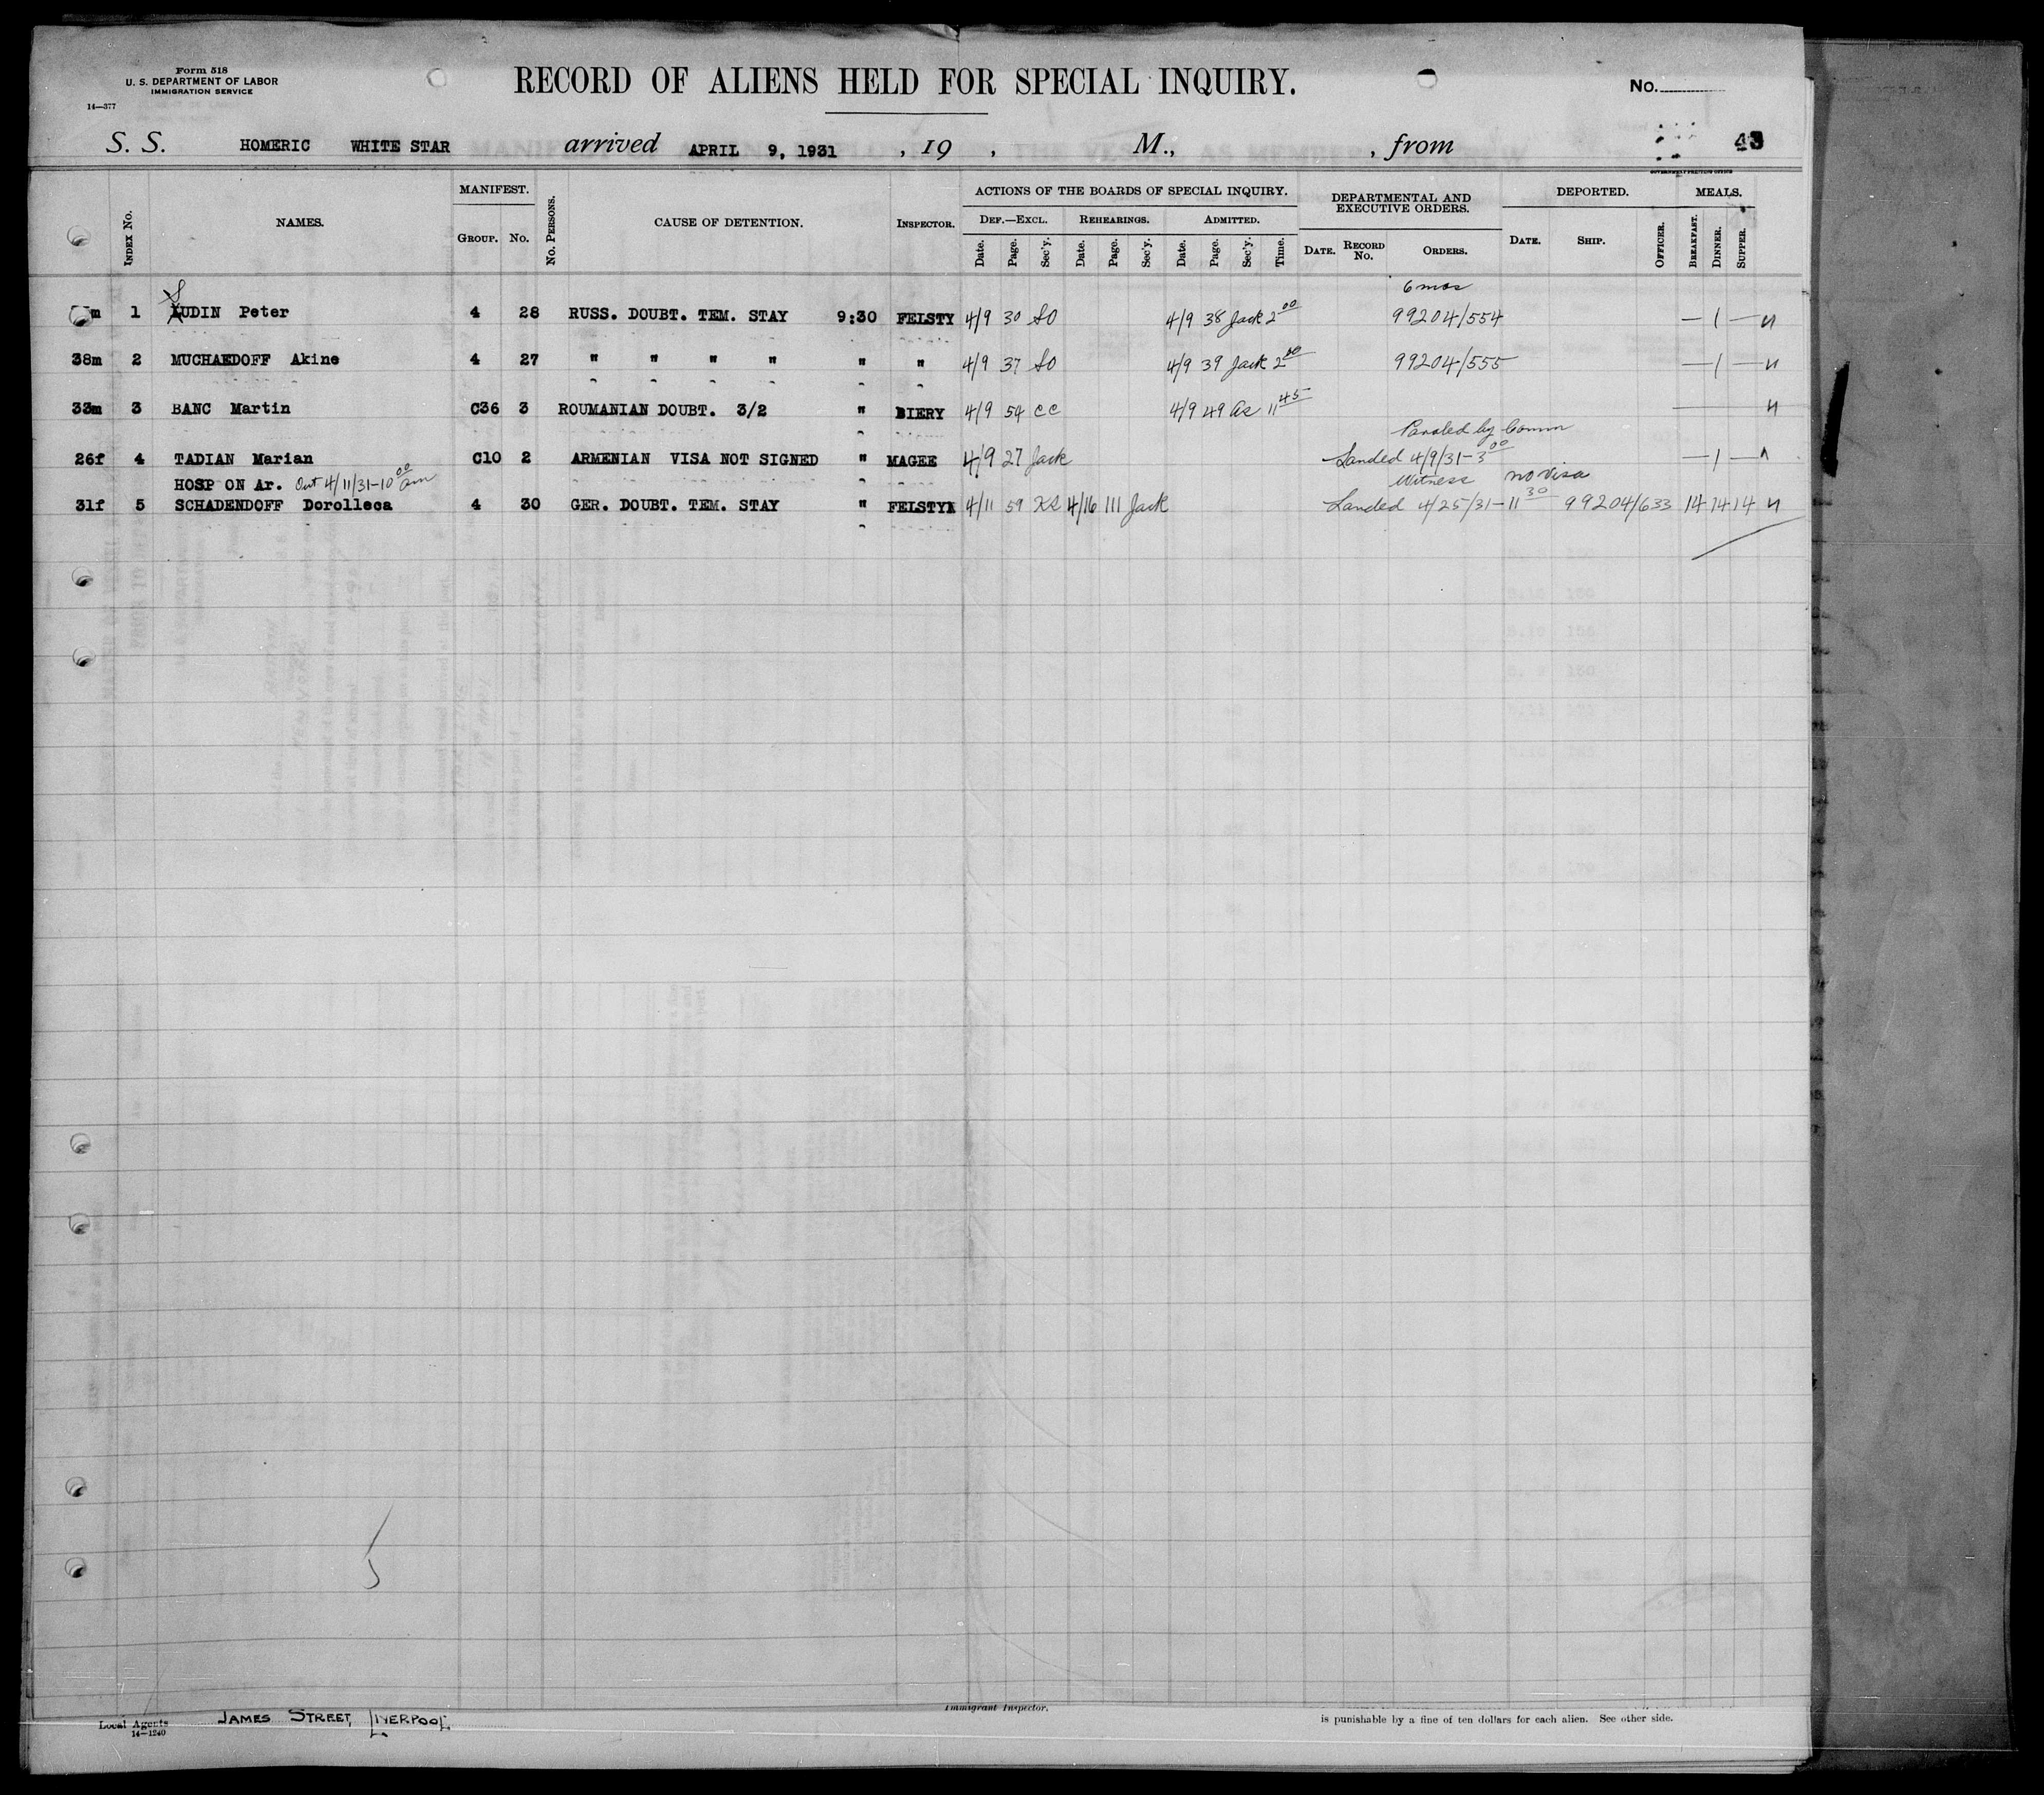 Form 518
U. S. DEPARTMENT OF LABOR
IMMIGRATION SERVICE
14—377
RECORD OF ALIENS HELD FOR SPECIAL INQUIRY.
No.
S. S. HOMERIC WHITE STAR arrived APRIL 9, 1931 , 19 , M., , from 43
GOVERNMENT PRINTING OFFICE
INDEX No. NAMES. MANIFEST. GROUP. No. No. PERSONS. CAUSE OF DETENTION. INSPECTOR. ACTIONS OF THE BOARDS OF SPECIAL INQUIRY. DEPARTMENTAL AND EXECUTIVE ORDERS. DEPORTED. MEALS.
DEF.—EXCL. REHEARINGS. ADMITTED.
Date. Page. Sec'y. Date. Page. Sec'y. Date. Page. Sec'y. Time. DATE. RECORD No. ORDERS. DATE. SHIP. OFFICER. BREAKFAST. DINNER. SUPPER.
6 mos
m 1 UDIN Peter 4 28 RUSS. DOUBT. TEM. STAY 9:30 FELSTY 4/9 30 SO 4/9 38 Jack 2 00 99204/554 — 1 —
38m 2 MUCHAEDOFF Akine 4 27 " " " " " " 4/9 37 SO 4/9 39 Jack 2 00 99204/555 — 1 —
33m 3 BANC Martin C36 3 ROUMANIAN DOUBT. 3/2 " BIERY 4/9 54 CC 4/9 49 11 45
Paroled by Comm
26f 4 TADIAN Marian C10 2 ARMENIAN VISA NOT SIGNED " MAGEE 4/9 27 Jack Landed 4/9/31–3 00 — 1 —
HOSP ON Ar. Out 4/11/31–10 00 am Witness no visa
31f 5 SCHADENDOFF Dorolleca 4 30 GER. DOUBT. TEM. STAY " FELSTY 4/11 59 4/16 111 Jack Landed 4/25/31–11 30 99204/633 14 14 14
5
Immigrant Inspector.
Local Agents JAMES STREET, LIVERPOOL
14—1240
is punishable by a fine of ten dollars for each alien. See other side.